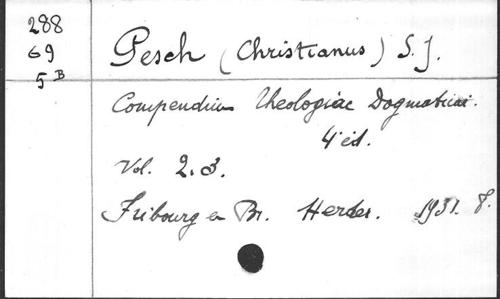 288
69
5 B
Pesch (Christianus) S. J.
Compendium Theologiae Dogmaticae.
4 éd.
Vol. 2. 3.
Fribourg en Br. Herder. 1931. 8.